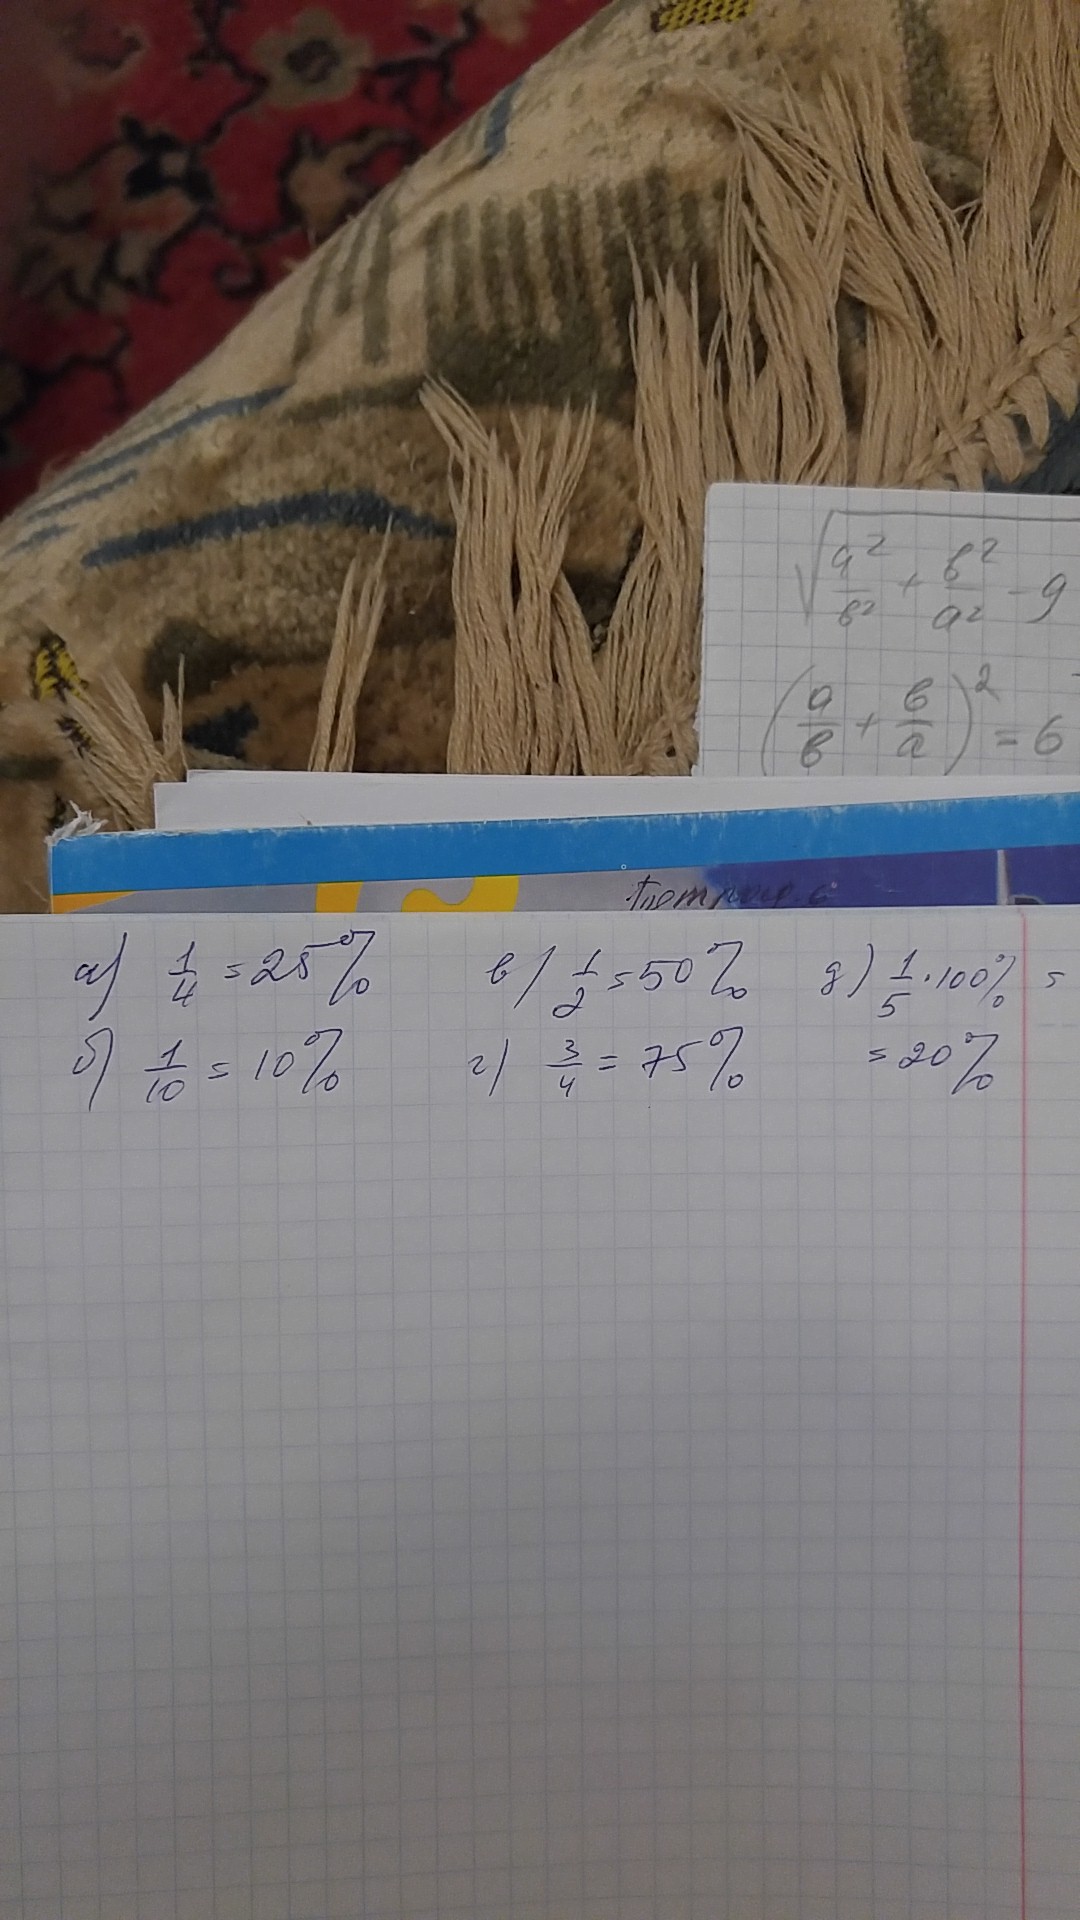 √(a²/в² + в²/a² - 9
(a/в + в/a)² = 6
а) 1/4 = 25% в) 1/2 = 50% д) 1/5 · 100% =
б) 1/10 = 10% г) 3/4 = 75% = 20%